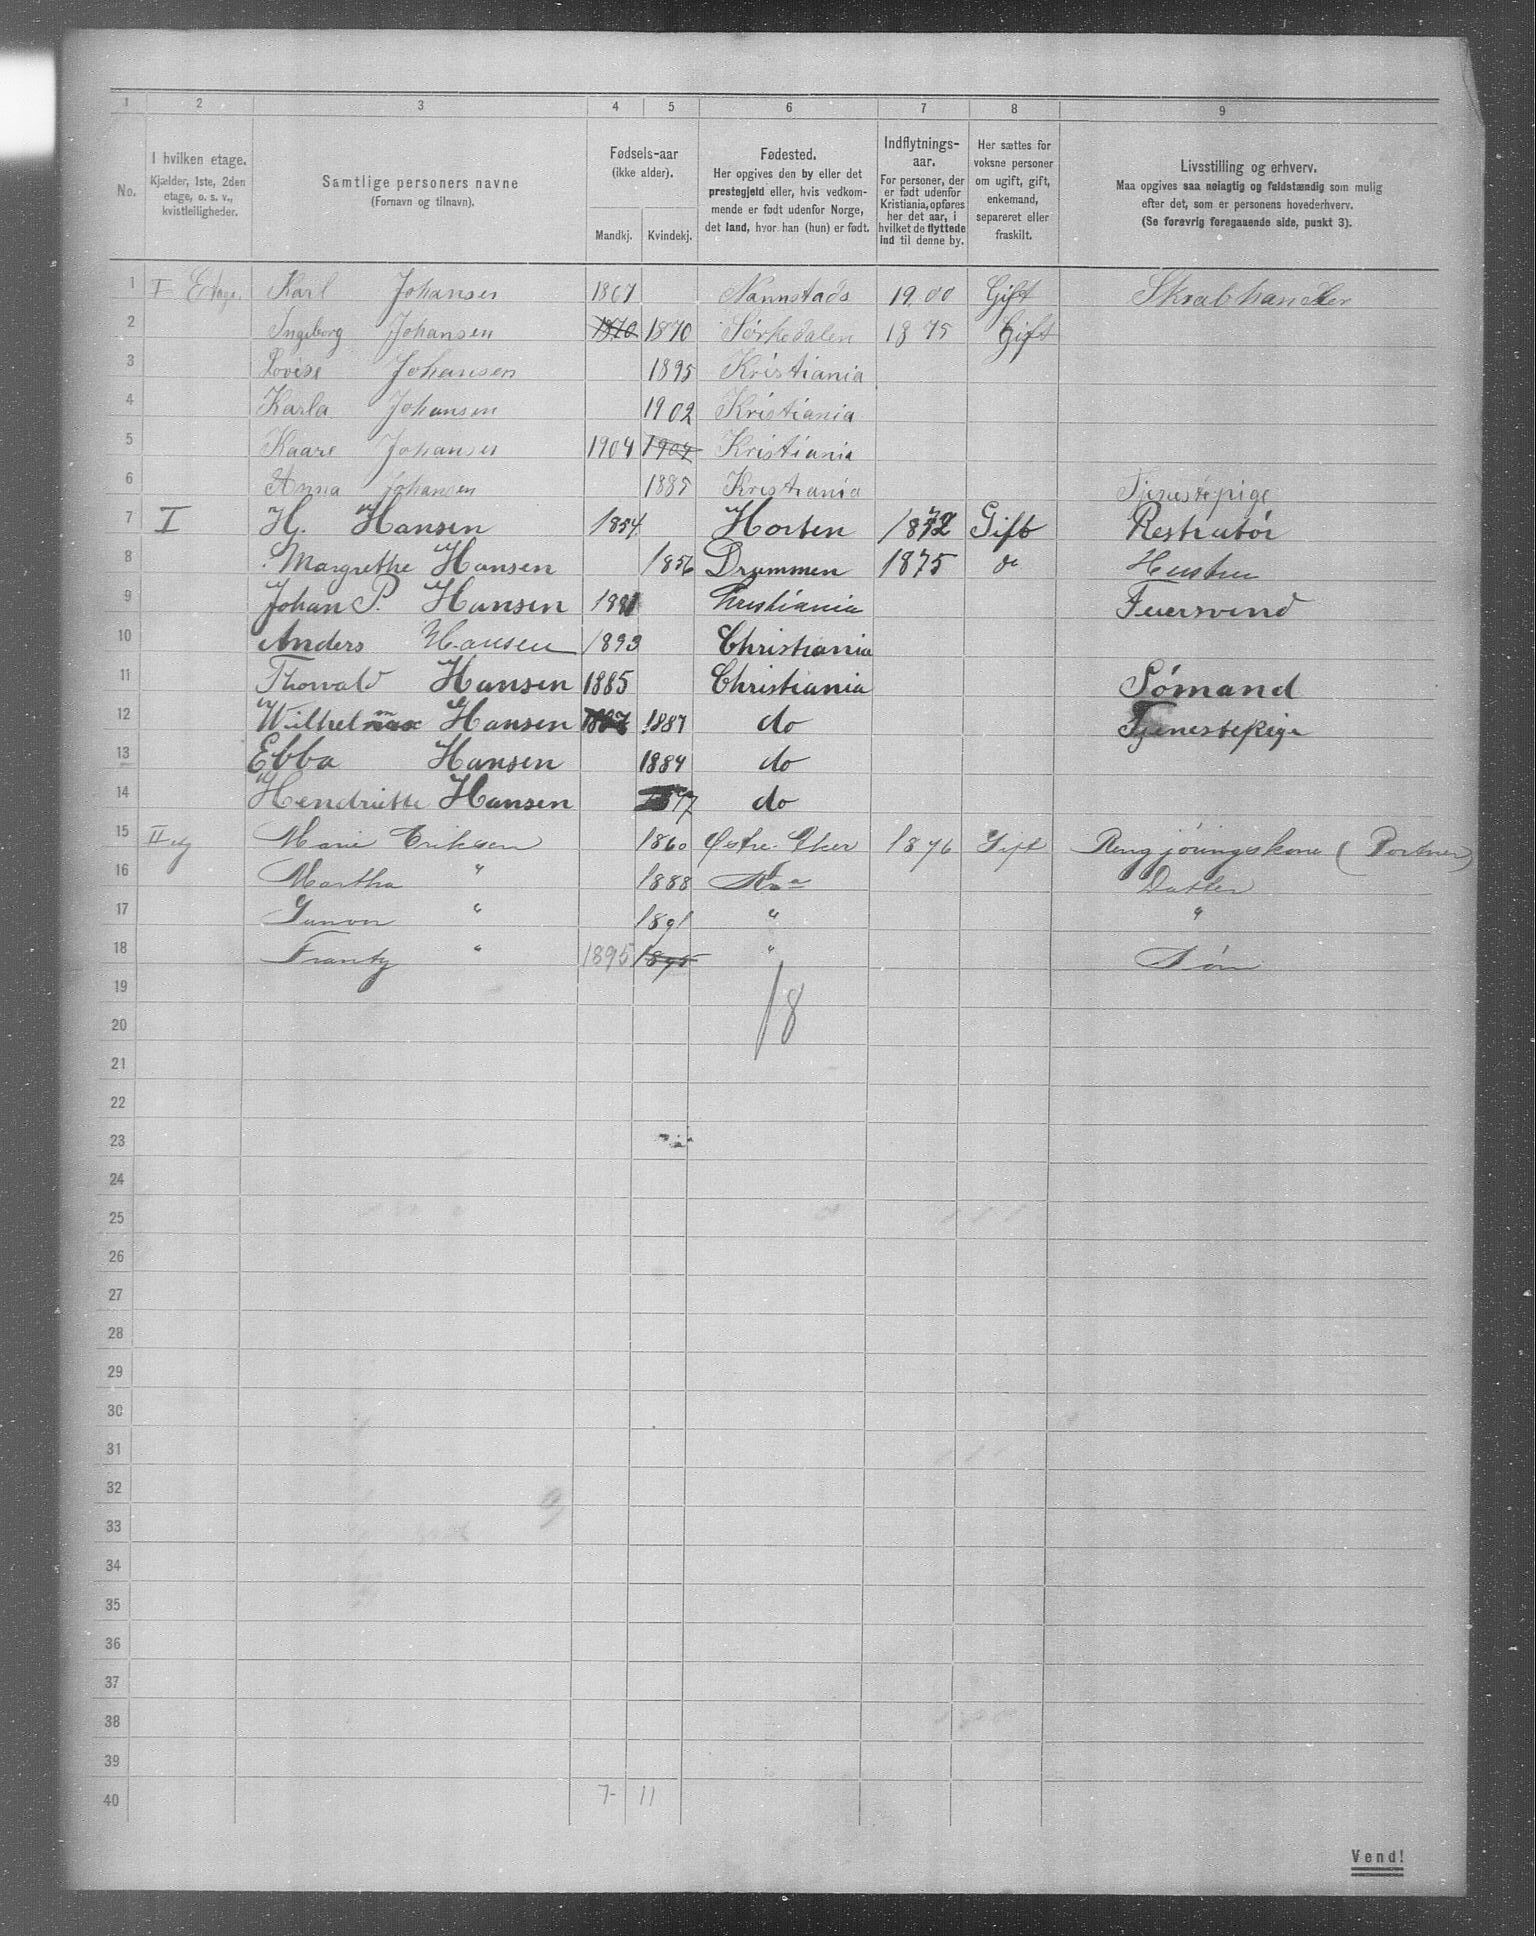 1 2 3 4 5 6 7 8 9
No.
I hvilken etage.
Kjælder, 1ste, 2den
etage, o. s. v.,
kvistleiligheder.
Samtlige personers navne
(Fornavn og tilnavn).
Fødsels-aar
(ikke alder).
Mandkj. Kvindekj.
Fødested.
Her opgives den by eller det
prestegjeld eller, hvis vedkom-
mende er født udenfor Norge,
det land, hvor han (hun) er født.
Indflytnings-
aar.
For personer, der
er født udenfor
Kristiania, opføres
her det aar, i
hvilket de flyttede
ind til denne by.
Her sættes for
voksne personer
om ugift, gift,
enkemand,
separeret eller
fraskilt.
Livsstilling og erhverv.
Maa opgives saa nøiagtig og fuldstændig som mulig
efter det, som er personens hovederhverv.
(Se forøvrig foregaaende side, punkt 3).
1 I Etage. Karl Johansen 1867 Nannstads 1900 Gift Skrabhandler
2 Ingeborg Johansen 1870 1870 Sørkedalen 1875 Gift
3 Lovise Johansen 1895 Kristiania
4 Karla Johansen 1902 Kristiania
5 Kaare Johansen 1904 1904 Kristiania
6 Anna Johansen 1885 Kristiania Tjenestepige
7 I H. Hansen 1854 Horten 1872 Gift Restratør
8 Margrethe Hansen 1856 Drammen 1875 do Hustru
9 Johan P. Hansen Christiania
10 Anders Hansen 1893 Christiania
11 Thorvald Hansen 1885 Christiania Sømand
12 Hansen 1887 1887 do Tjenestepige
13 Ebba Hansen 1884 do
14 Hendriette Hansen do
15 II etg Marie Eriksen 1860 Østre Eker 1876 Gift Rengjøringskone (Portner)
16 Martha " 1888 Kra Datter
17 Gunvor " 1891 " "
18 Frantz " 1895 1895 " Søn
19
18
20
21
22
23
24
25
26
27
28
29
30
31
32
33
34
35
36
37
38
39
40 7- 11
Vend!